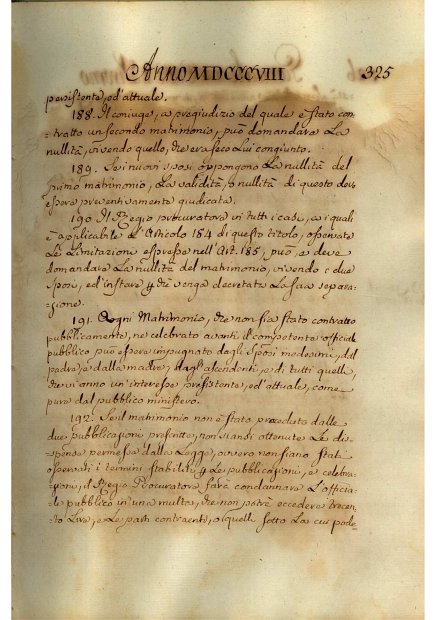 Anno MDCCCVIII 325
persistente, ed'attuale.
188. Il coniuge, a pregiudizio del quale è stato con-
tratto un secondo matrimonio, può domandare la
nullità, vivendo quello, che era seco lui congiunto.
189. Se i nuovi sposi oppongono la nullità del
primo matrimonio, la validità, o nullità di questo deve
essere preventivamente giudicata.
190. Il Regio procuratore in tutti i casi, a i quali
è applicabile l'Articolo 184 di questo titolo, osservate
le limitazioni espresse nell'Art. 185, può, e deve
domandare la nullità del matrimonio, vivendo i due
sposi, ed'instare che venga decretata la sua separa-
zione.
191. Ogni Matrimonio, che non sia stato contratto
pubblicamente, ne celebrato avanti il competente official
pubblico può essere impugnato dagli sposi medesimi, dal
padre, e dalla madre, dagli ascendenti, e di tutti quelli,
che vi anno un'interesse presistente, ed'attuale, come
pure dal pubblico ministero.
192. Se il matrimonio non è stato preceduto dalle
due pubblicazioni prescritte, non siansi ottenute le di-
spense permesse dalla Legge, ovvero non siano stati
osservati i termini stabiliti le pubblicazioni, e celebra-
zione, il Regio Procuratore farà condannare l'officia-
le pubblico in una multa, che non potrà eccedere trecen-
to Lire, e le parti contraenti, o quelli sotto la cui pode-